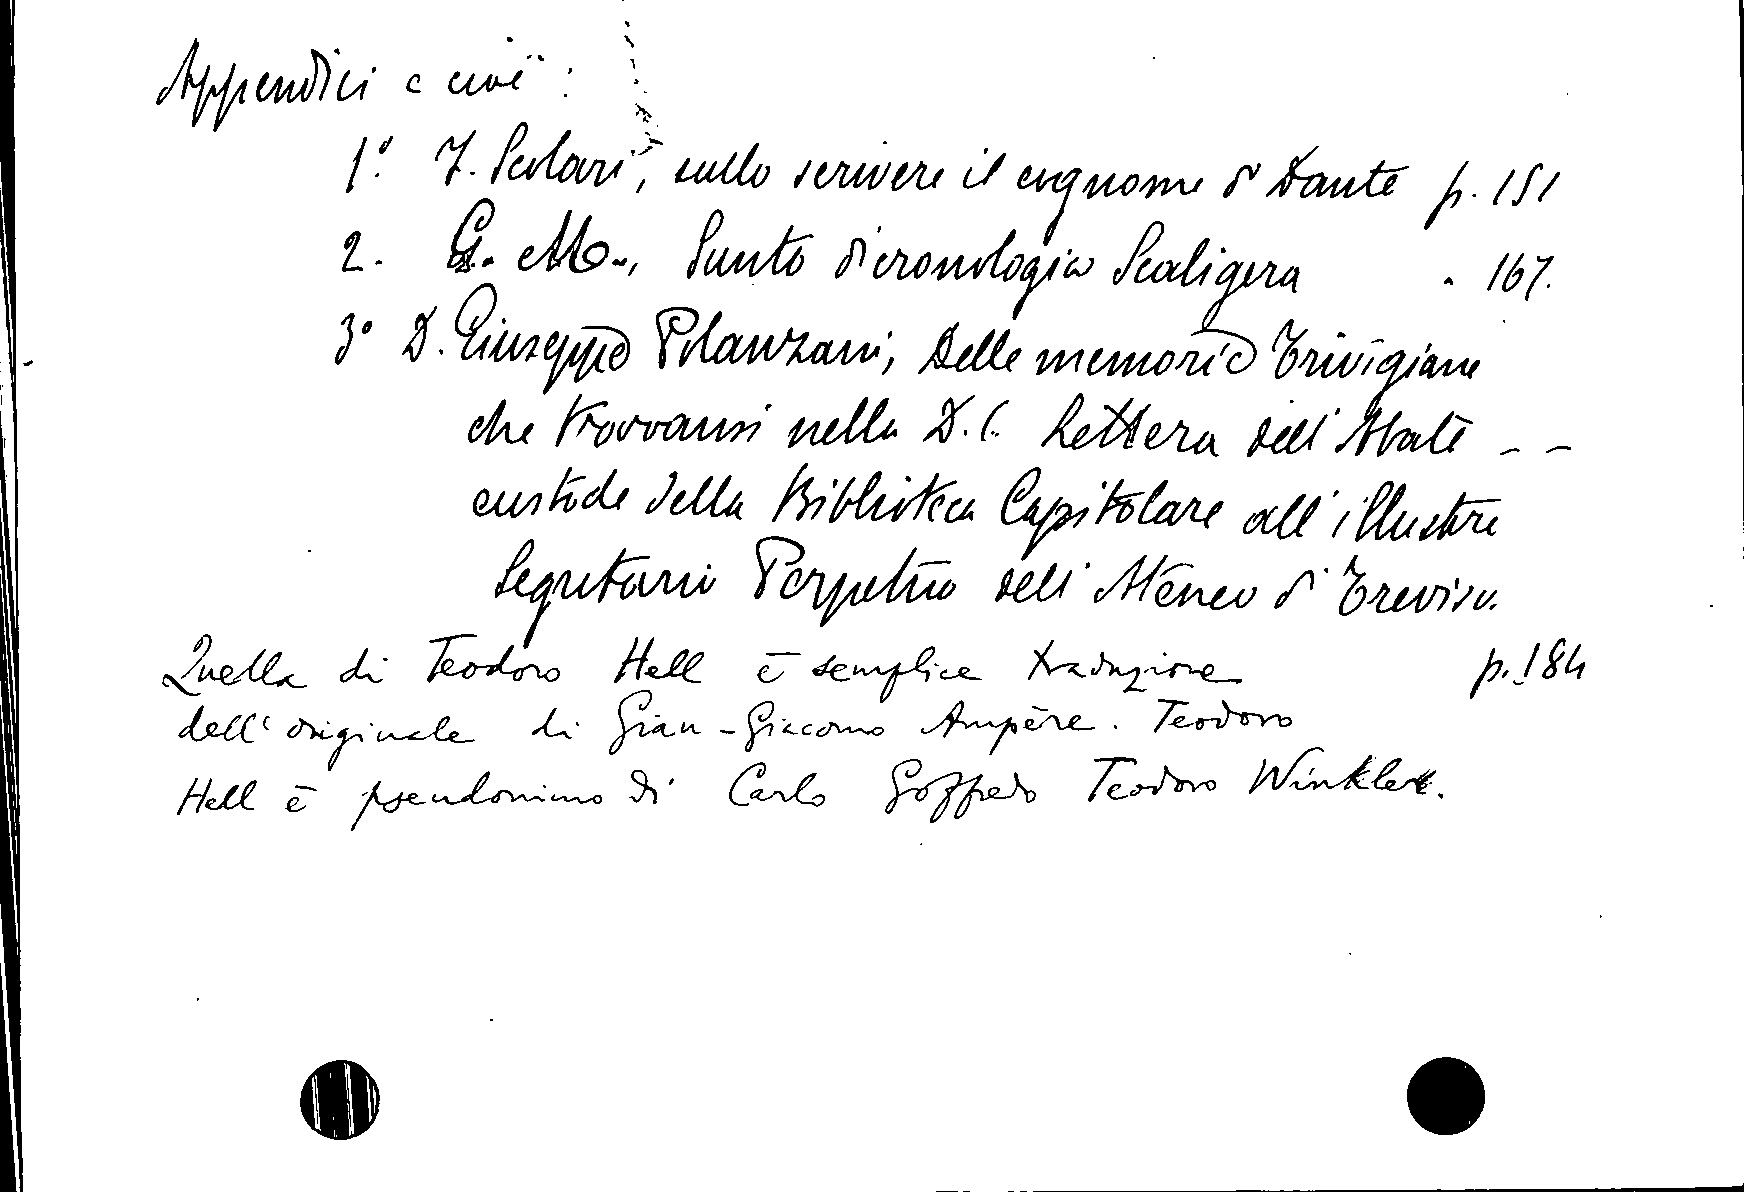 Appendici e cioè:
1º F. Scolari, sullo scrivere il cognome di Dante p. 151
2. G. M., Sunto di cronologia Scaligera " 167.
3º D. Giuseppe Polanzani, Delle memorie Trivigiane
che trovansi nella D.C. Lettera dell'Abate - -
custode della Biblioteca Capitolare all'illustre
Segretario Perpetuo dell'Ateneo di Treviso.
p. 184
Quella di Teodoro Hell è semplice traduzione
dell'originale di Gian-Giacomo Ampère. Teodoro
Hell è pseudonimo di Carlo Goffredo Teodoro Winkler.